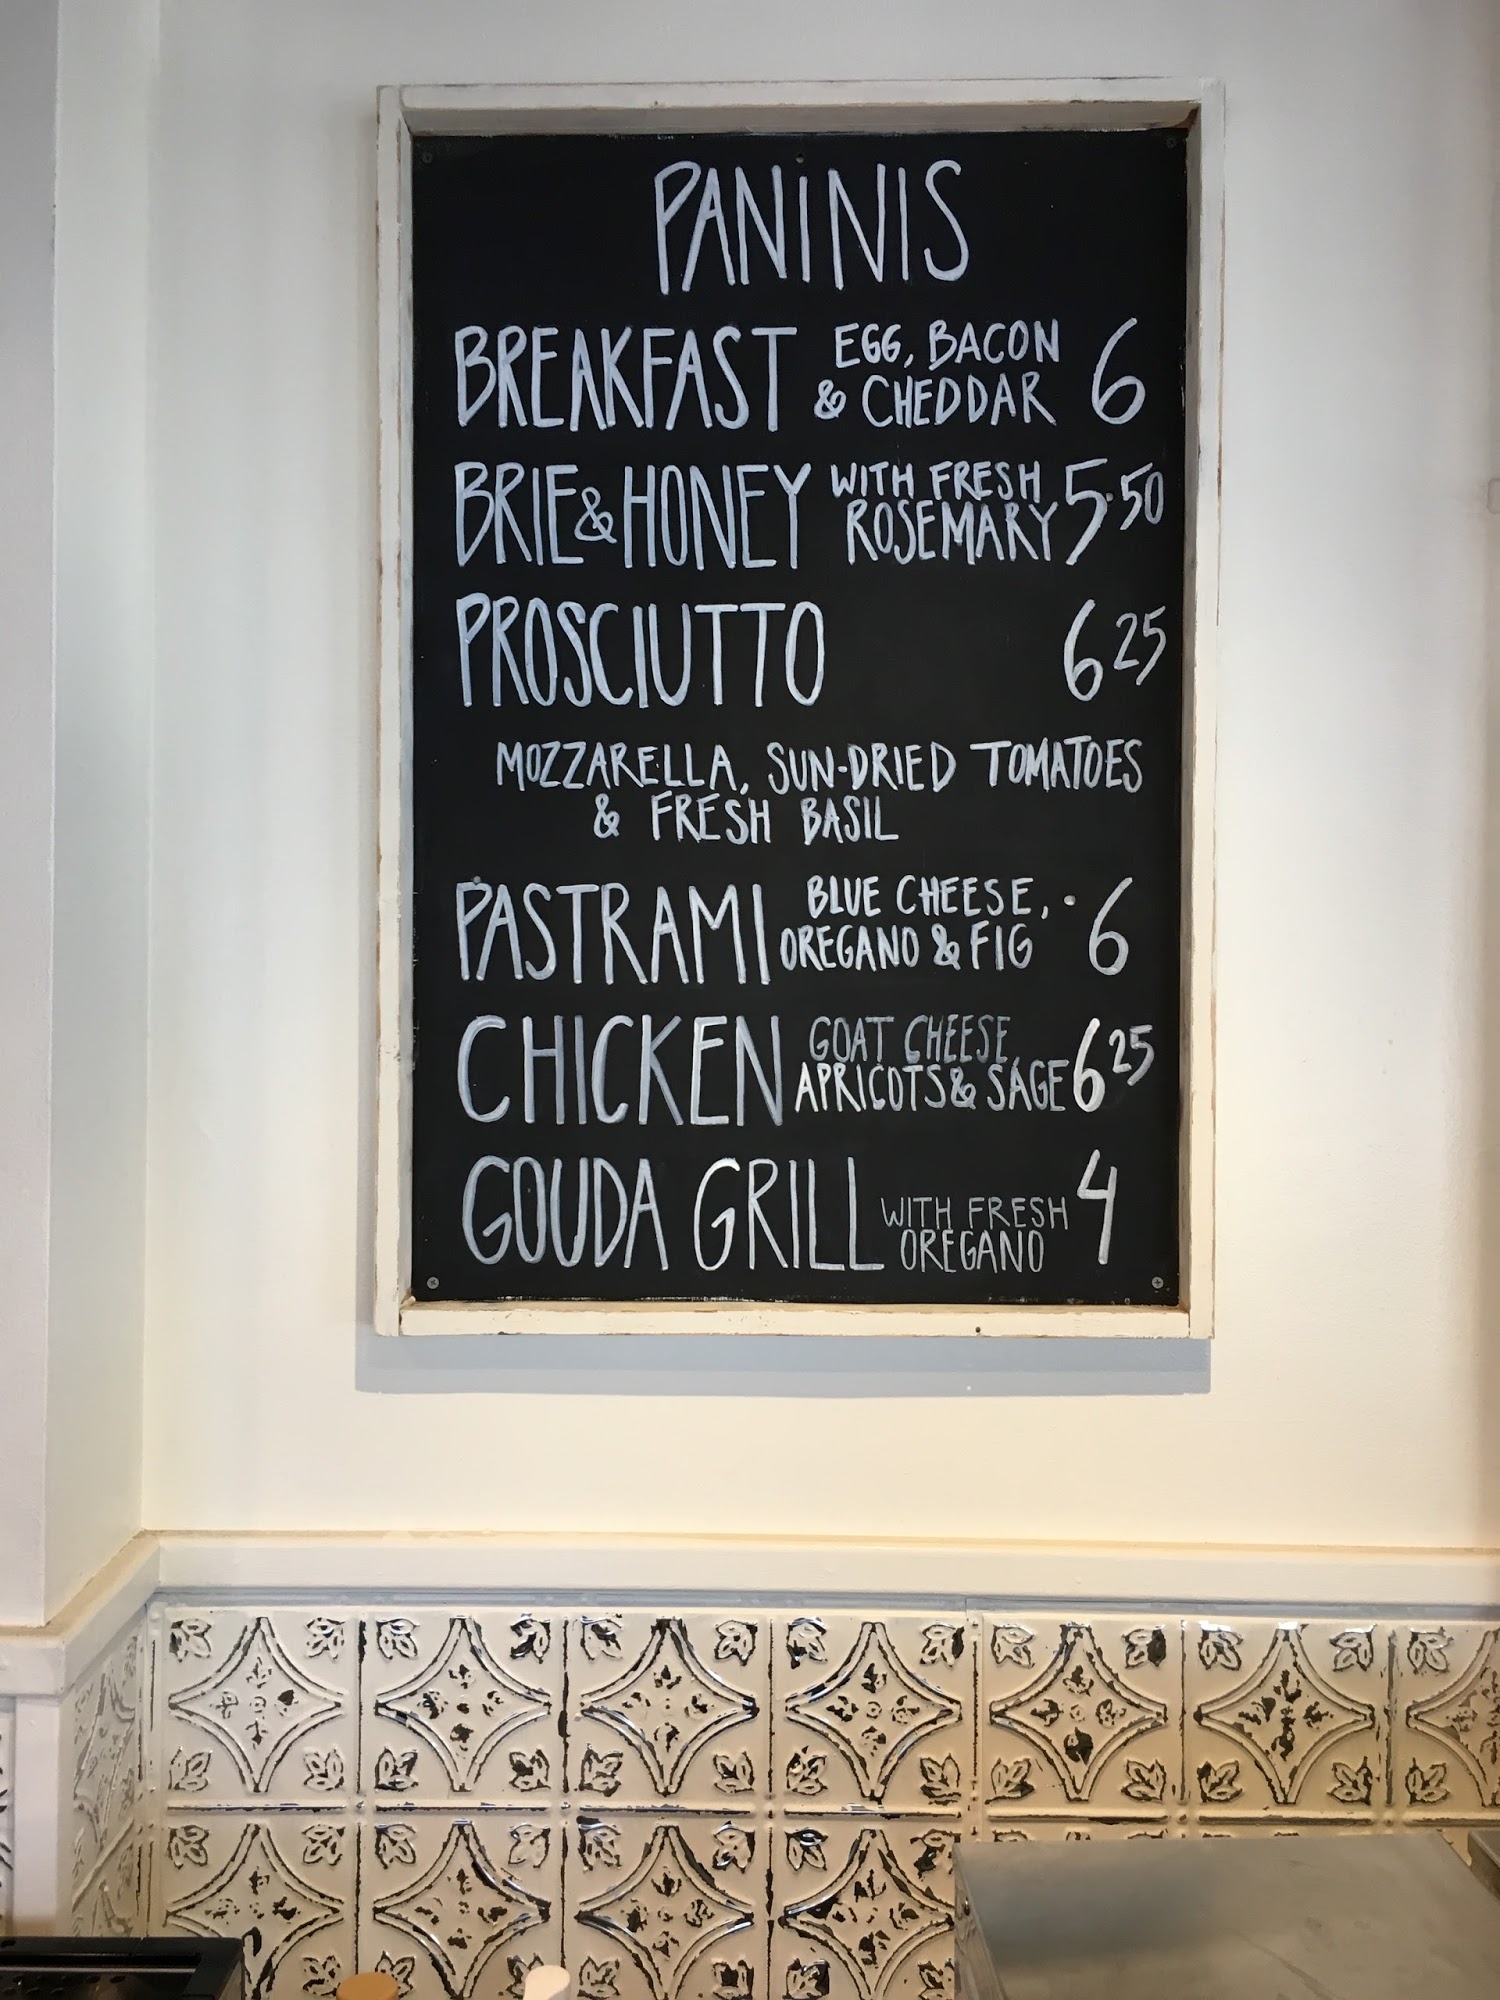 PANINIS
BREAKFAST EGG, BACON & CHEDDAR 6
BRIE & HONEY WITH FRESH ROSEMARY 5.50
PROSCIUTTO 6 25
MOZZARELLA, SUN-DRIED TOMATOES
& FRESH BASIL
PASTRAMI BLUE CHEESE, OREGANO & FIG 6
CHICKEN GOAT CHEESE, APRICOTS & SAGE 6 25
GOUDA GRILL WITH FRESH OREGANO 4